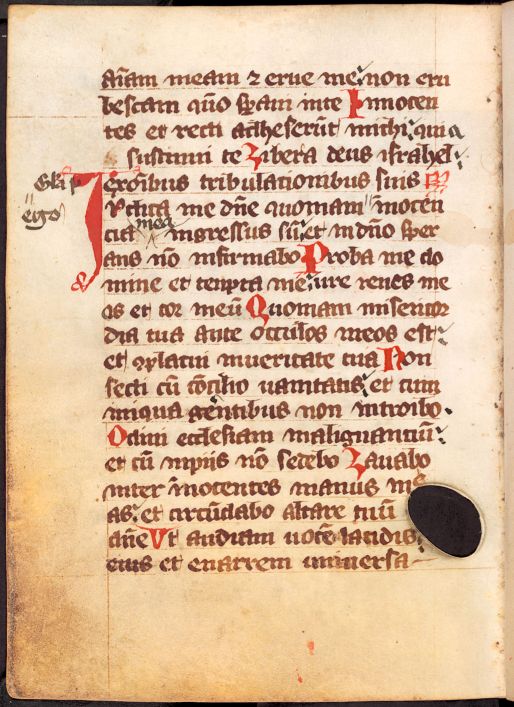 aīam meam ⁊ erue me non eru
bescam qm̄o sp̄aui in te Innocen
tes et recti adheserūt michi quia
sustinui te Libera deus israhel
Gl'a p'
ex om̄ibus tribulationibus suis
Iudica me dn̄e quoniam in innocen
ego
mea
cia ingressus sū et in dn̄o sper
ans nō infirmabo Proba me do
mine et tempta me ure renes me
os et cor meū Quoniam misericor
dia tua ante occulos meos est
et 9placui in ueritate tua Non
sedi cū cōcilio uanitatis et cum
iniqua gentibus non introibo
Odiui ecclesiam malignantiū
et cū inpiis nō sedebo Lauabo
inter īnocentes manus me
as et circūdabo altare tuū
dn̄e Ut audiam uocē laudis
eius et enarrem uniuersa